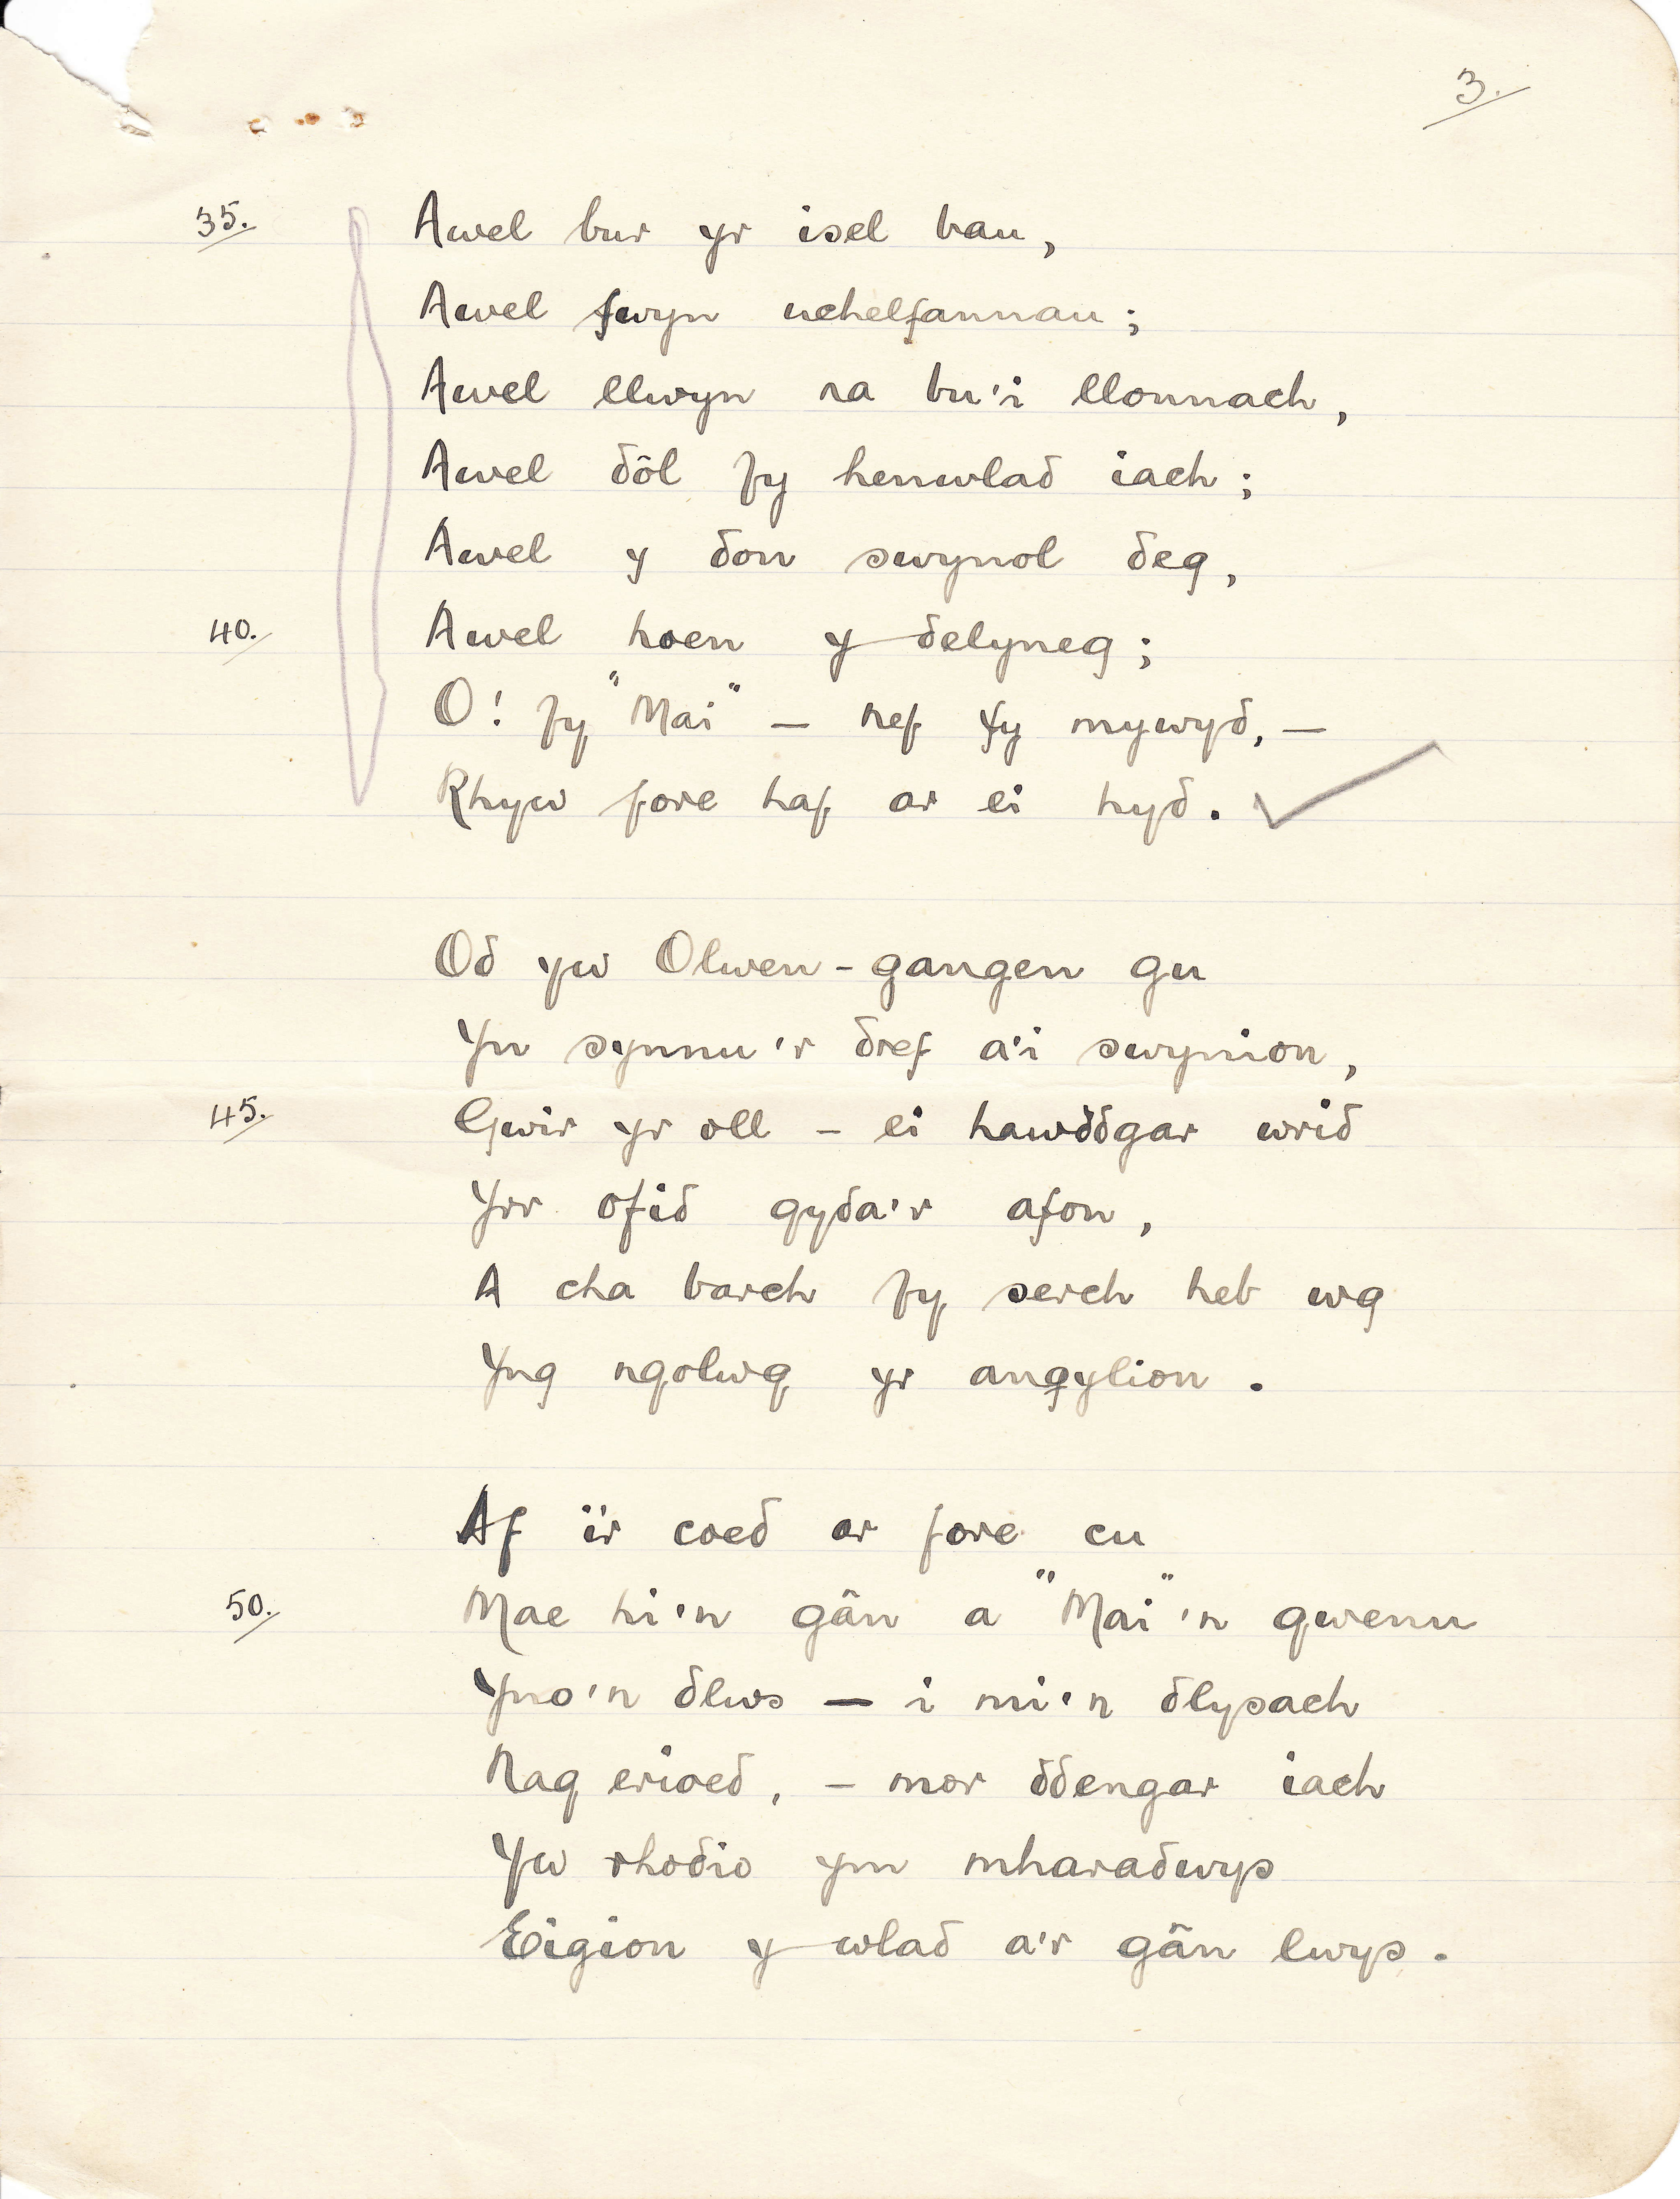 3.
35. Awel bur yr isel bau,
Awel fwyn uchelfannau;
Awel llwyn na bu'i llonnach,
Awel dôl fy henwlad iach;
Awel y don swynol deg,
40. Awel hoen y delyneg;
O! fy "Mai" – nef fy mywyd, –
Rhyw fore haf ar ei hyd. ✓
Od yw Olwen - gangen gu
Yn synnu'r dref a'i swynion,
45. Gwir yr oll – ei hawddgar wrid
Yrr ofid gyda'r afon,
A cha barch fy serch heb wg
Yng ngolwg yr angylion.
Af i'r coed ar fore cu
50. Mae hi'n gân a "Mai"'n gwenu
Yno'n dlws – i mi'n dlysach
Nag erioed, – mor ddengar iach
Yw rhodio ym mharadwys
Eigion y wlad a'r gân lwys.